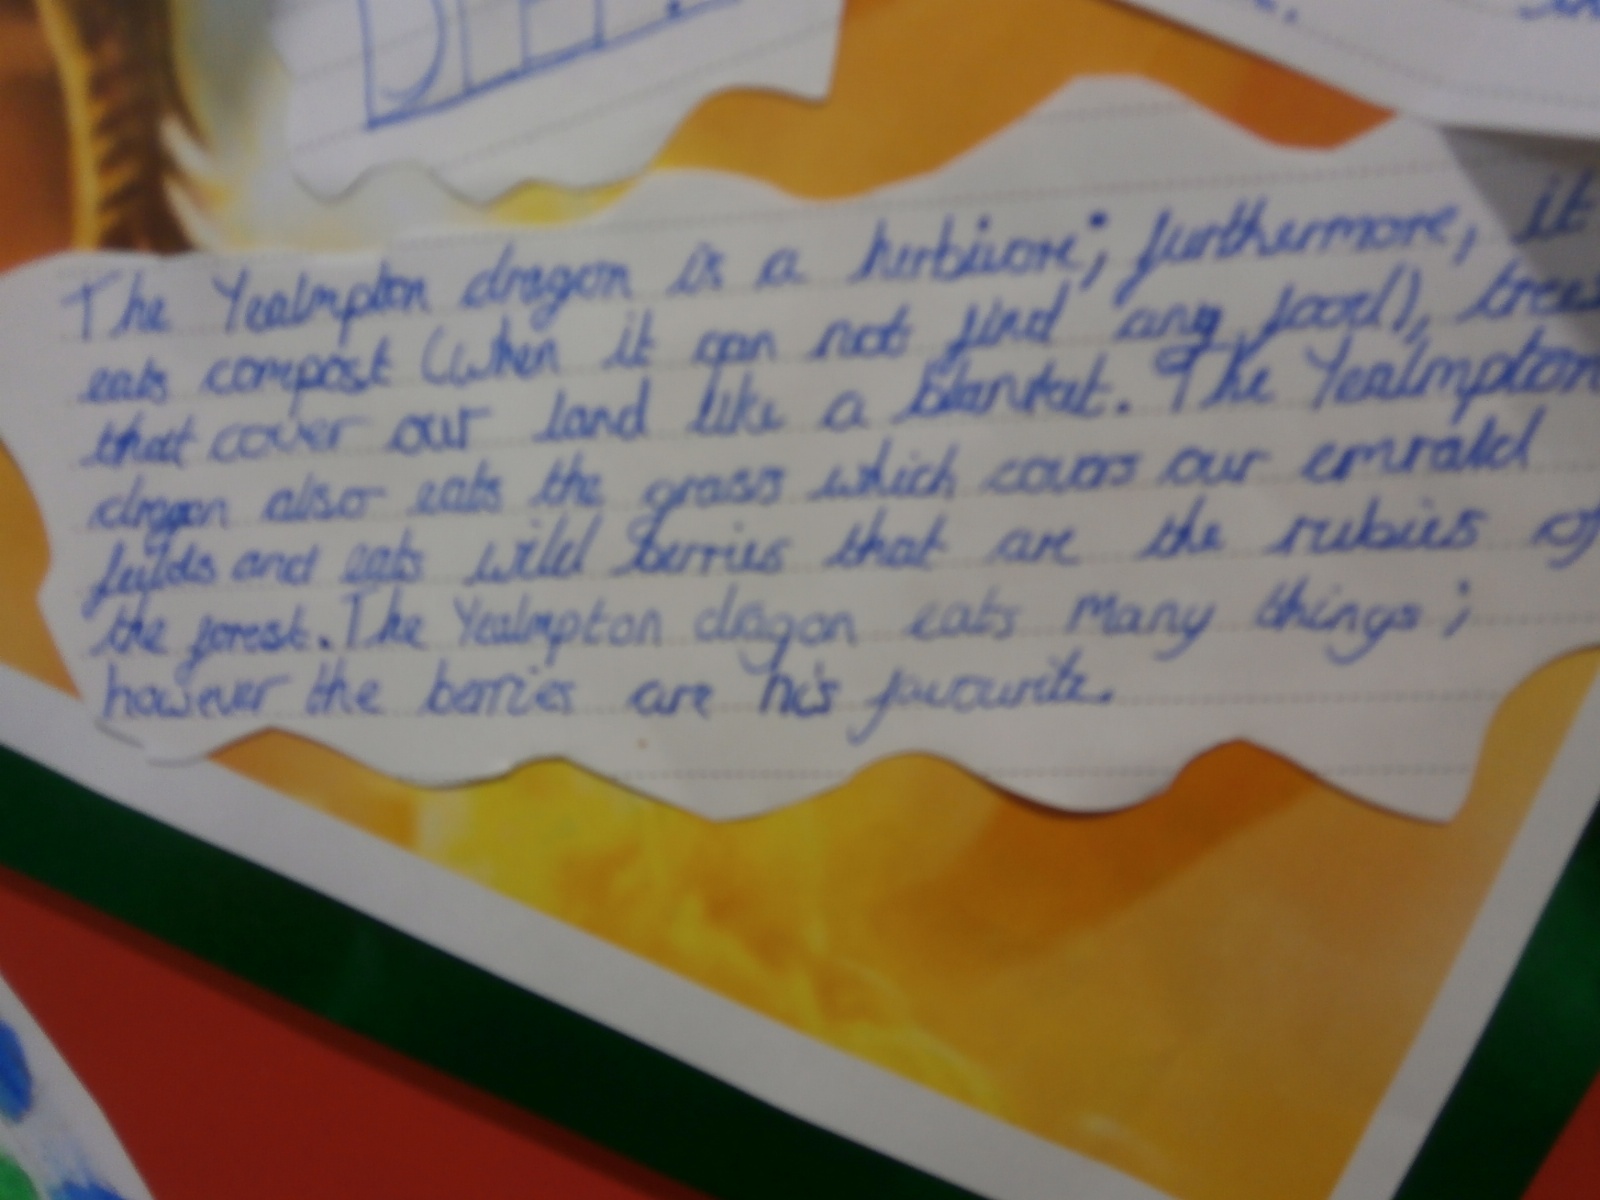 DIET.
The Yealmpton dragon is a herbivore; furthermore, it
eats compost (when it can not find any food), trees
that cover our land like a blanket. The Yealmpton
dragon also eats the grass which covers our emrald
feilds and eats wild berries that are the rubies of
the forest. The Yealmpton dragon eats many things;
however the berries are his favourite.